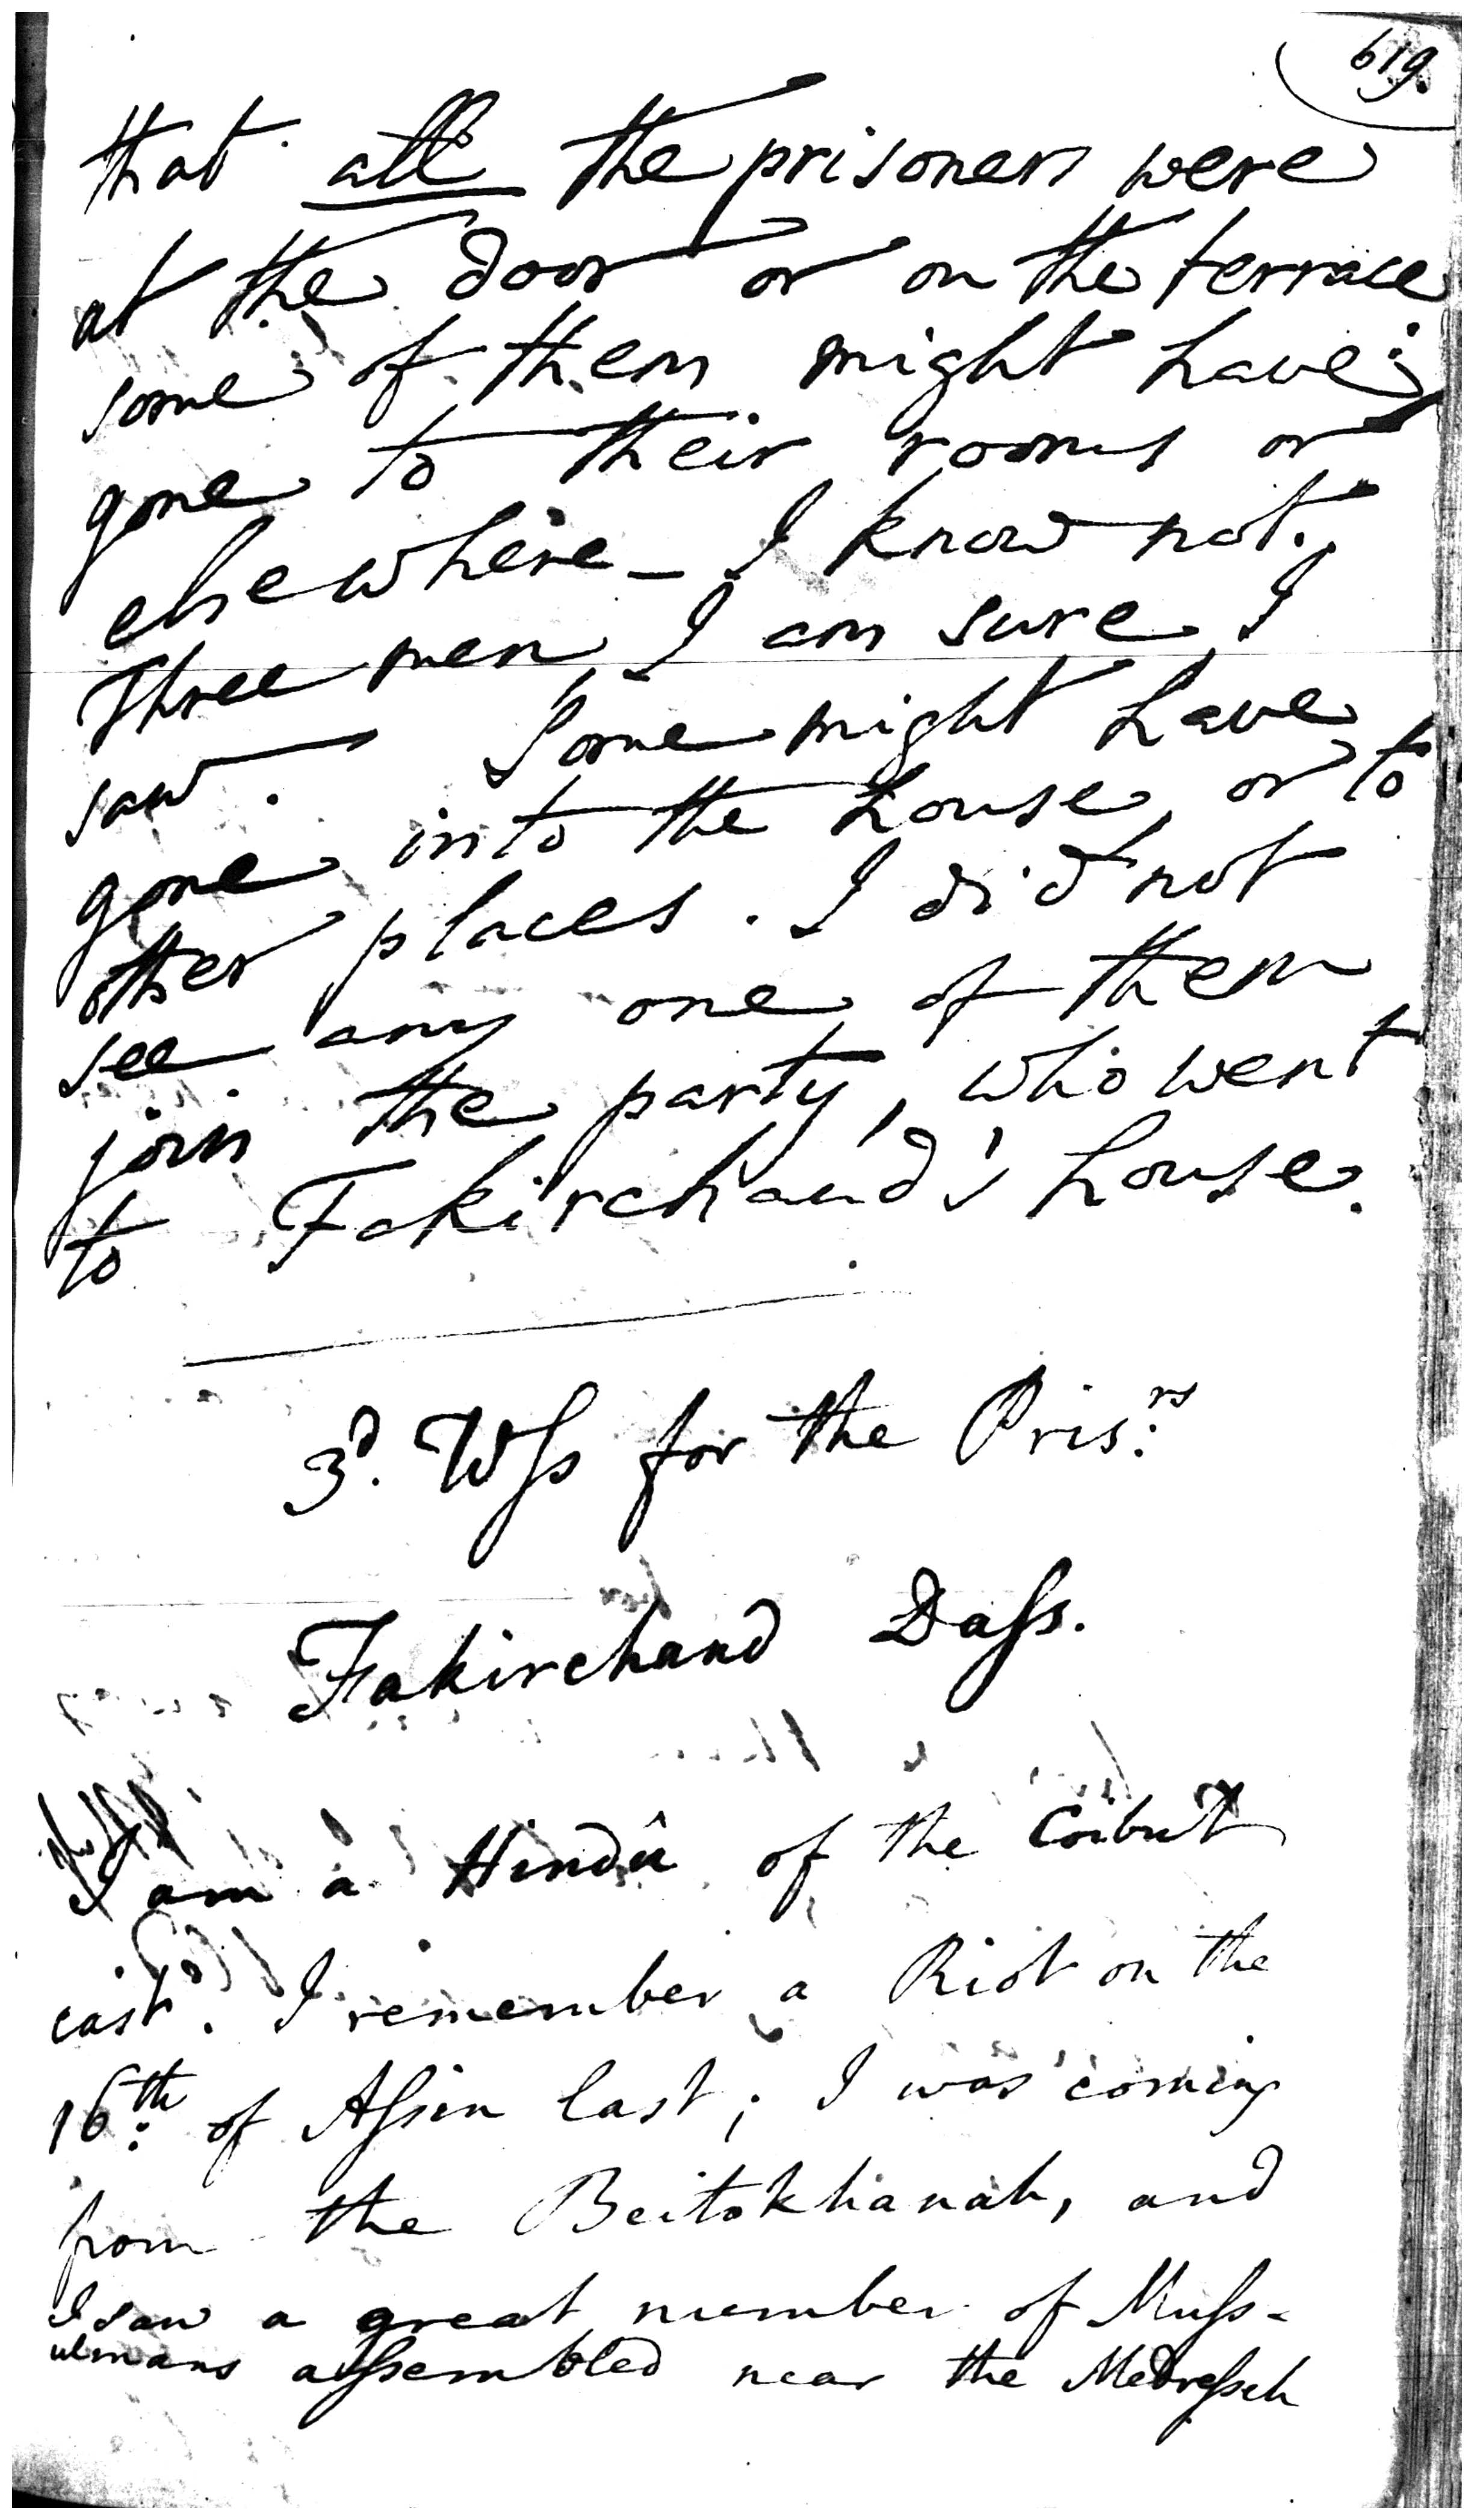 619.
that all the prisoners were
at the door or on the terrace
some of them might have
gone to their rooms or
elsewhere _ I know not.
Three men I am sure I
saw. Some might have
gone into the house, or to
other places. I did not
see any one of them
join the party, who went
to Fakirchand's house.
3d. Wss for the Pris:rs
Fakirchand Dass.
I am a Hindû of the
cast. I remember a Riot on the
16th: of Assin last; I was coming
from the Beitakhanah, and
I saw a great number of Muss-
ulmans assembled near the Medresseh